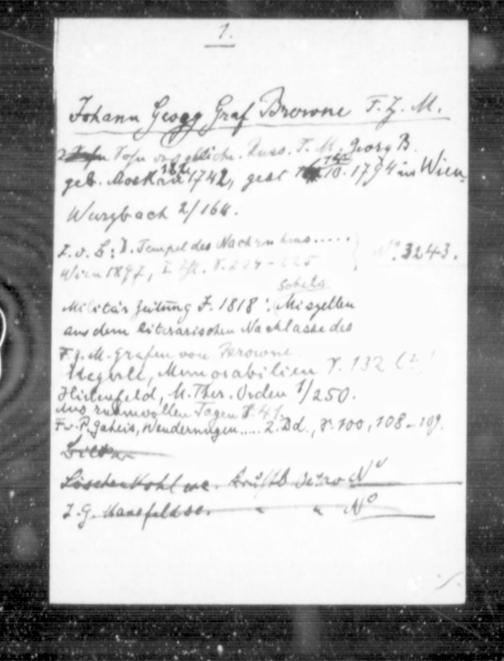 1.
Johann Georg Graf Browne F.Z.M.
Sohn Russ. F.M. Georg B.
geb. Moskau 1742, gest 10. 1794 in Wien.
Wurzbach 2/164.
F. v. S: D. Tempel des Nachruhms..... N°. 3243.
Wien 1897, I
Militär Zeitung J. 1818: Miszellen
aus dem literarischen Nachlasse des
F.Z.M. Grafen von Browne.
Memorabilien S. 132
Hirtenfeld, M. Ther. Orden 1/250.
Aus ruhmvollen Tagen S. 41.
F. v. P. Gaheis, Wanderungen..... 2. Bd., S. 100, 108-109.
Löschenkohl N°
J. G. Mansfeld " " N°